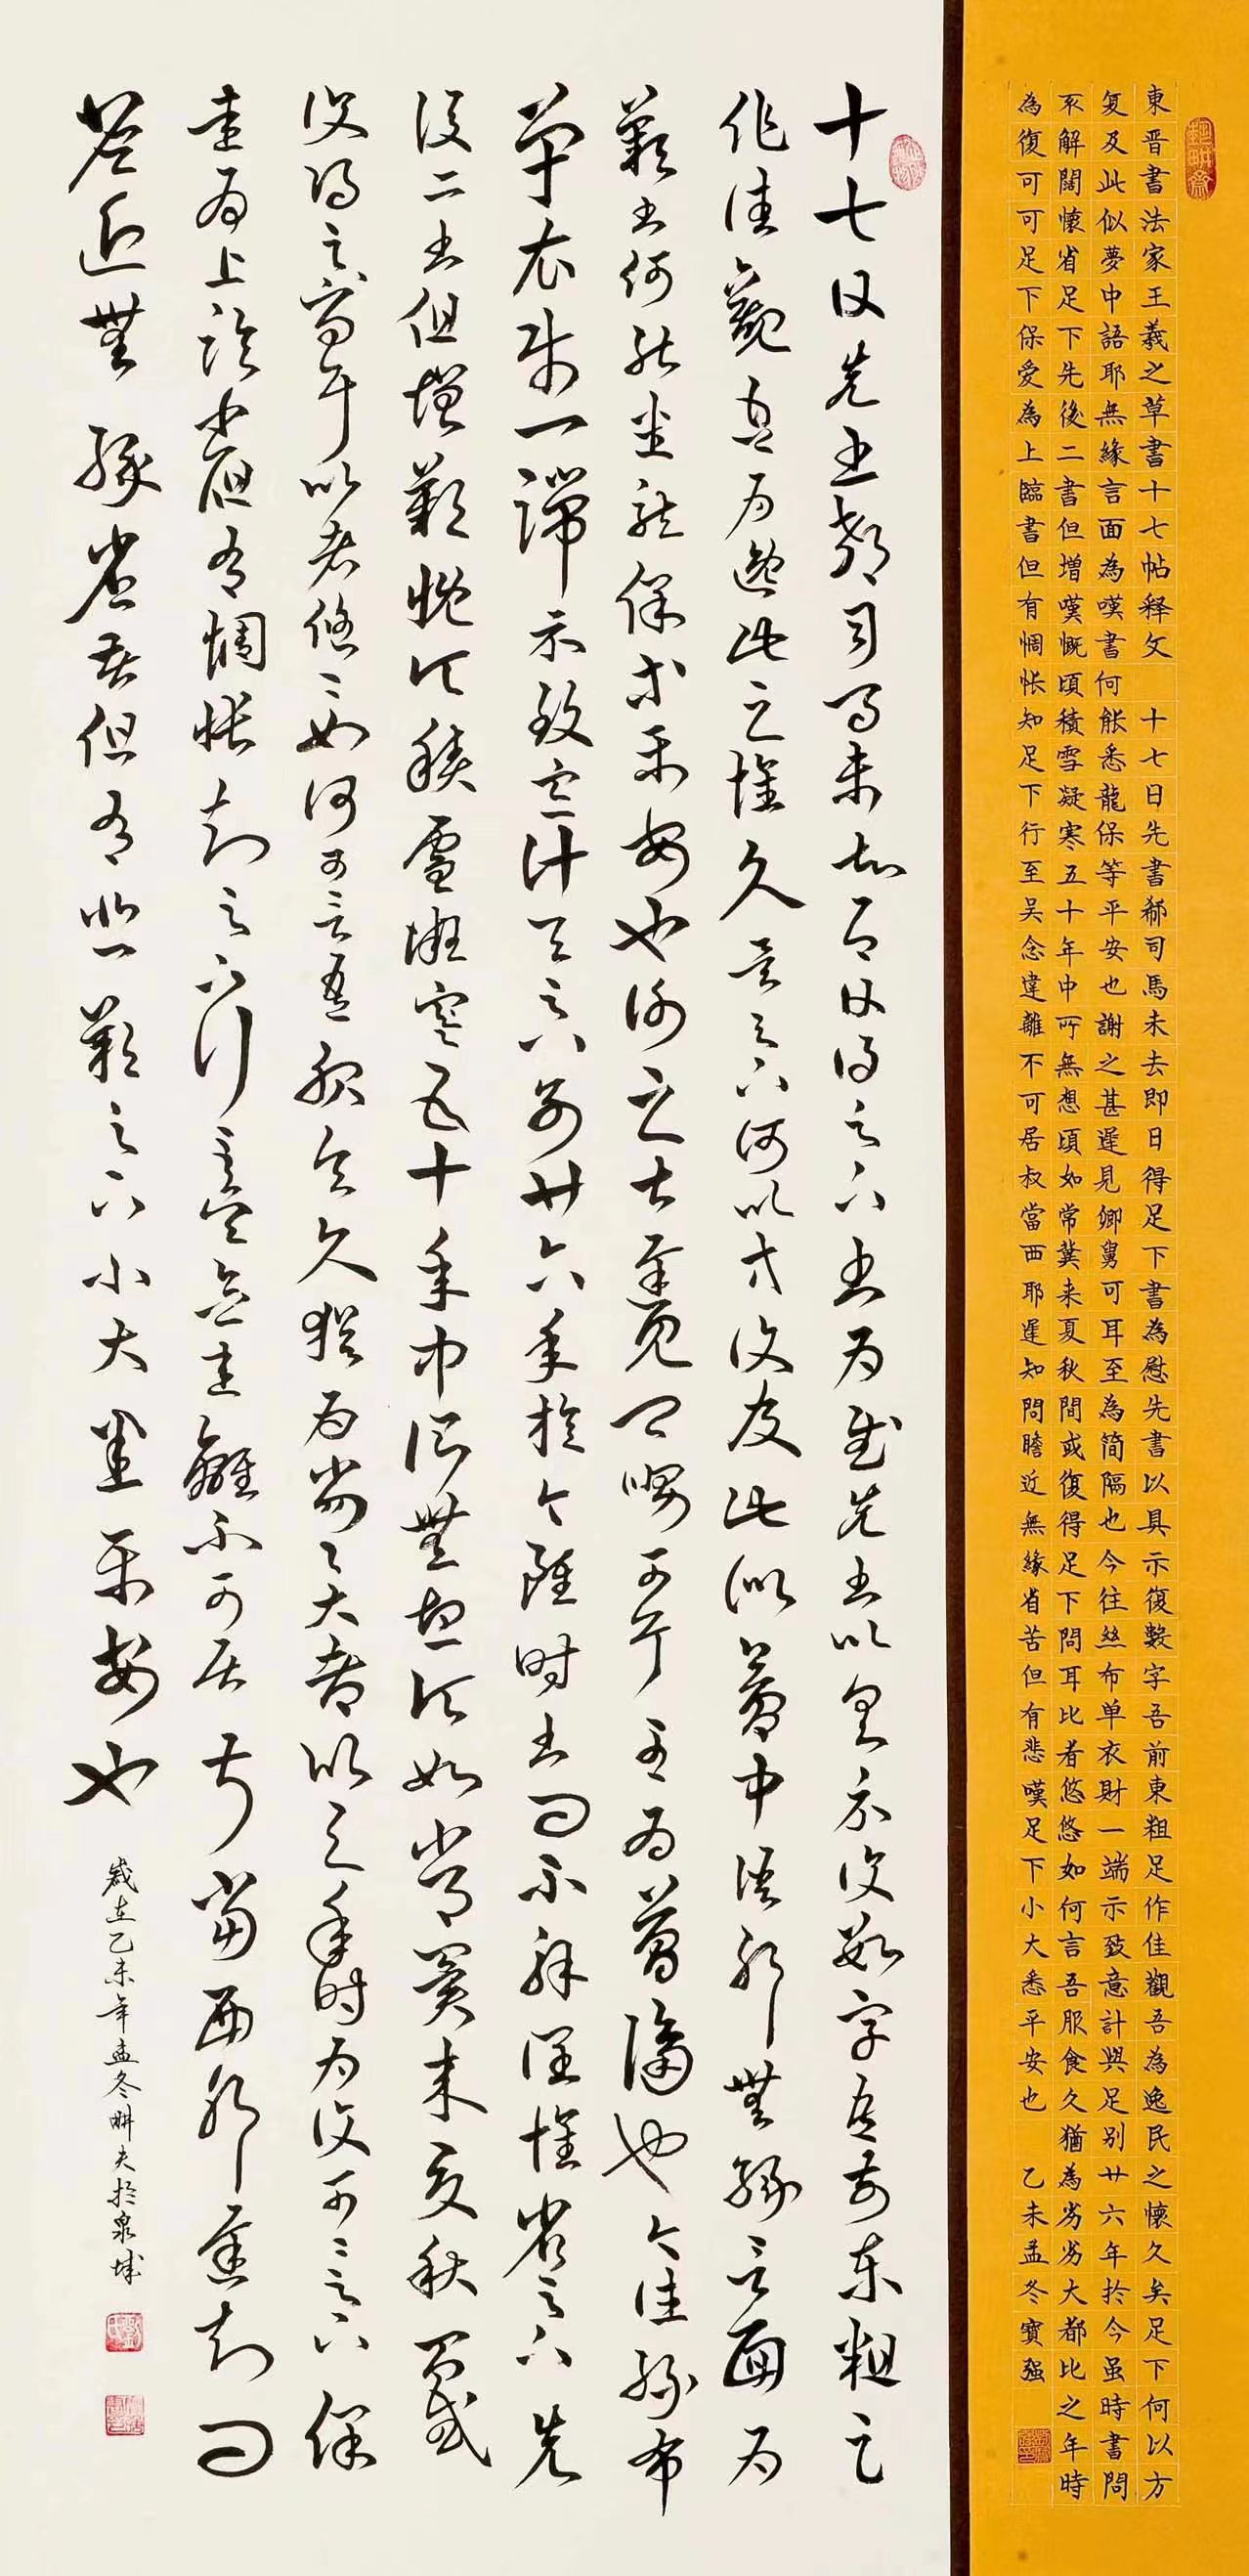 東晋書法家王羲之草書十七帖释文 十七日先書郗司馬未去即日得足下書為慰先書以具示復數字吾前東粗足作佳觀吾為逸民之懷久矣足下何以方
复及此似夢中語耶無緣言面為嘆書何能悉龍保等平安也謝之甚遲見卿舅可耳至為简隔也今往丝布单衣財一端示致意計與足别廿六年於今虽時書問
不解闊懷省足下先後二書但增嘆慨頃積雪凝寒五十年中所無想頃如常冀来夏秋間或復得足下問耳比者悠悠如何言吾服食久猶為劣劣大都比之年時
為復可可足下保爱為上臨書但有惆怅知足下行至吴念違離不可居叔當西耶遲知問瞻近無緣省苦但有悲嘆足下小大悉平安也 乙未孟冬寶强
十七日先書郗司馬未去即日得足下書為慰先書以具示復數字吾前東粗足
作佳觀吾為逸民之懷久矣足下何以方復及此似夢中語耶無緣言面為
歎書何能悉龍保等平安也謝之甚遲見卿舅可耳至為簡隔也今往絲布
單衣財一端示致意計與足下別廿六年於今雖時書問不解闊懷省足下先
後二書但增歎慨頃積雪凝寒五十年中所無想頃如常冀來夏秋間或
復得足下問耳比者悠悠如何可言吾服食久猶為劣劣大都比之年時為復可可足下保
愛為上臨書但有惆悵知足下行至吳念違離不可居叔當西耶遲知問
瞻近無緣省苦但有悲歎足下小大悉平安也
歲在乙未年孟冬畊夫於泉城